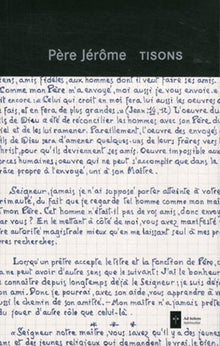 Père Jérôme TISONS
iens, amis fidèles, aux hommes dont il veut faire ses amis.
Comme mon Père m'a envoyé, moi aussi je vous envoie.
encore : « Celui qui croit en moi fera, lui aussi les oeuvres
fais, et en fera de plus grandes. » (Jean L'oeuvre du
ils de Dieu a été de réconcilier les hommes avec son Père, du
iel et de les lui ramener. Pareillement, l'oeuvre des envoyés
ils de Dieu sera d'amener quelques-uns de leurs frères vers
hrist, pour qu'ils deviennent ses amis. Oeuvre impossible aux
orces humaines, oeuvre qui ne peut s'accomplir que dans la
râce propre à l'envoyé, uni à son Maître.
Seigneur, jamais je n'ai supposé porter atteinte à votre
rimauté, du fait que je regardai tel homme comme mon maître
mon Père. Cet homme n'était-il pas de vos amis, donc envoyé
ar vous ? En le mettant à côté de moi, vous avez manifesté
otre autorité magistrale mieux qu'en me laissant seul à mes pau
res recherches.
Lorsqu'un prêtre accepte le titre et la fonction de Père,
ne peut avoir d'autre sens que le suivant : J'ai le bonheur
e connaître depuis longtemps déjà le Seigneur ; je suis déjà
on ami. Donc je pourrai, avec son aide, vous apprendre à
ussi le chemin de son amitié. - Mon maître n'a jamais préten
du jouer d'autre rôle que celui-là.
« Seigneur notre maître, vous savez qu'il y a des jeunes
et des jeunes religieux qui demandent le vrai, le bien,
Ad Solem